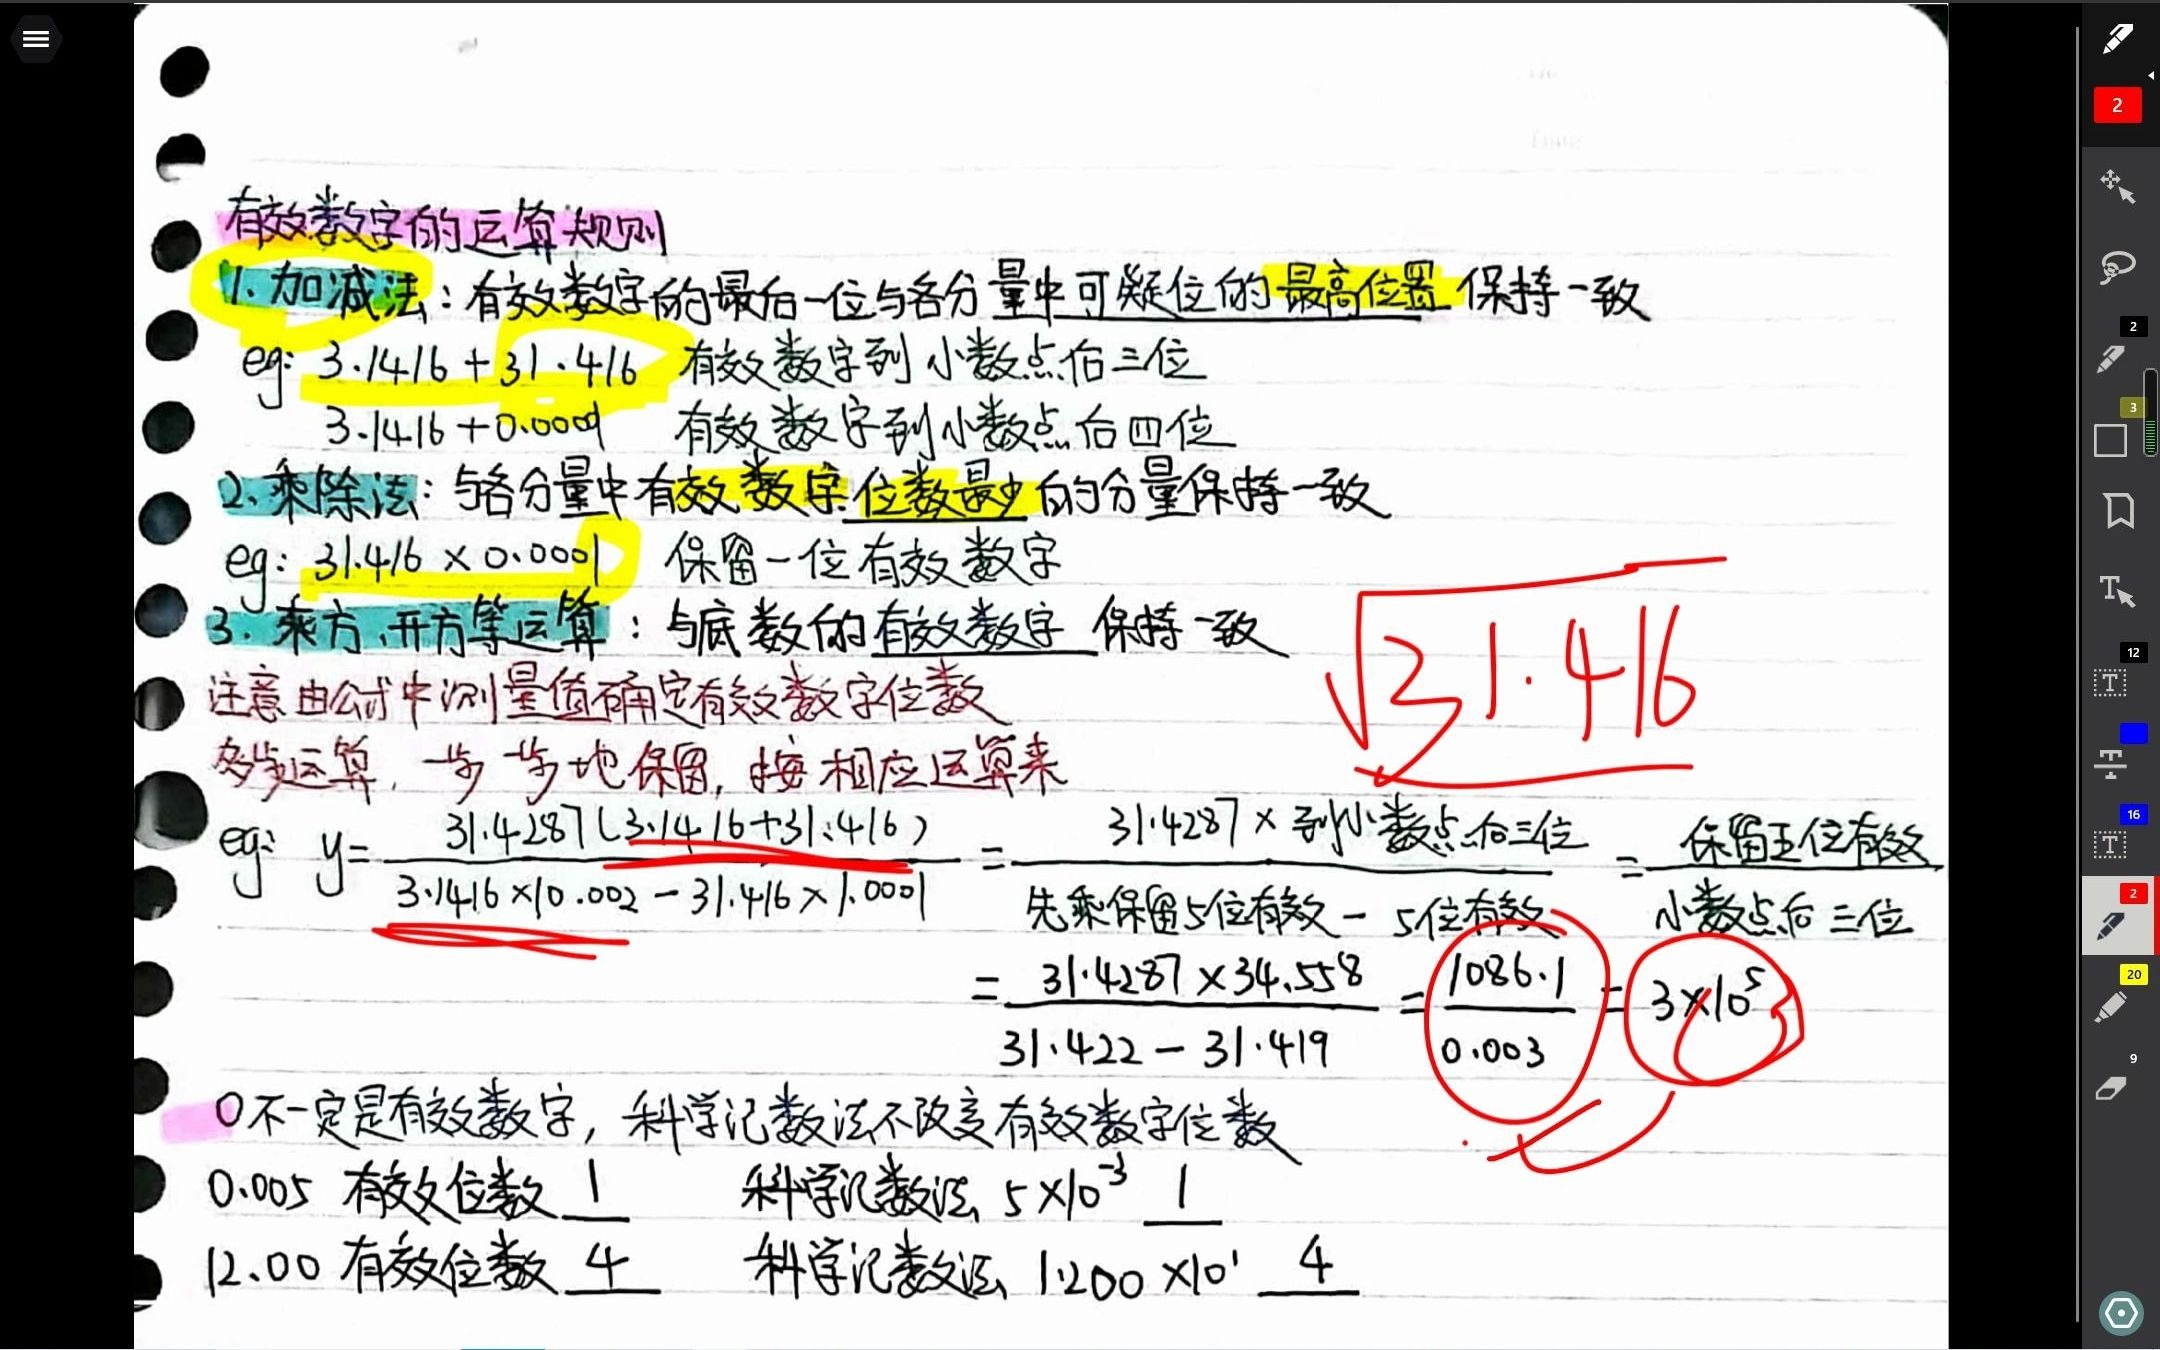 有效数字的运算规则
1. 加减法：有效数字的最后一位与各分量中可疑位的最高位置保持一致
eg: 3.1416 + 31.416 有效数字到小数点后三位
3.1416 + 0.0001 有效数字到小数点后四位
2. 乘除法：与各分量中有效数字位数最少的分量保持一致
eg: 31.416 × 0.0001 保留一位有效数字
3. 乘方、开方等运算：与底数的有效数字保持一致
√31.416
注意由公式中测量值确定有效数字位数
多步运算，一步一步地保留，按相应运算来
eg: y = 31.4287(3.1416+31.416) / 3.1416×10.002 - 31.416×1.0001 = 31.4287 × 到小数点后三位 / 先乘保留5位有效 - 5位有效 = 保留五位有效 / 小数点后三位
= 31.4287 × 34.558 / 31.422 - 31.419 = 1086.1 / 0.003 = 3×10⁵
0不一定是有效数字，科学记数法不改变有效数字位数
0.005 有效位数 1 科学记数法 5×10⁻³ 1
12.00 有效位数 4 科学记数法 1.200×10¹ 4
2
2
3
12
16
2
20
9